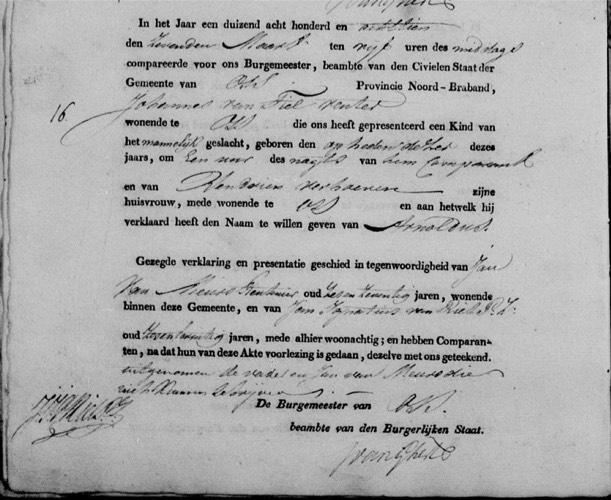 In het Jaar een duizend acht honderd en achttien
den zevenden Maart ten vijf uren des middags
compareerde voor ons Burgemeester, beambte van den Civielen Staat der
Gemeente van Oss Provincie Noord-Braband,
16. Johannes van Tiel
wonende te Oss die ons heeft gepresenteerd een Kind van
het mannelijk geslacht, geboren den op heden dezes
jaars, om Een uur des nagts van hem Comparant
en van Hendrien Verhoeven zijne
huisvrouw, mede wonende te Oss en aan hetwelk hij
verklaard heeft den Naam te willen geven van Arnoldus.
Gezegde verklaring en presentatie geschied in tegenwoordigheid van Jan
van Meurs oud jaren, wonende
binnen deze Gemeente, en van Jan Ignatius van
oud jaren, mede alhier woonachtig; en hebben Comparan-
ten, na dat hun van deze Akte voorlezing is gedaan, dezelve met ons geteekend.
uitgenomen de vader en Jan van Meurs die
niet kunnen schrijven
De Burgemeester van Oss.
beambte van den Burgerlijken Staat.